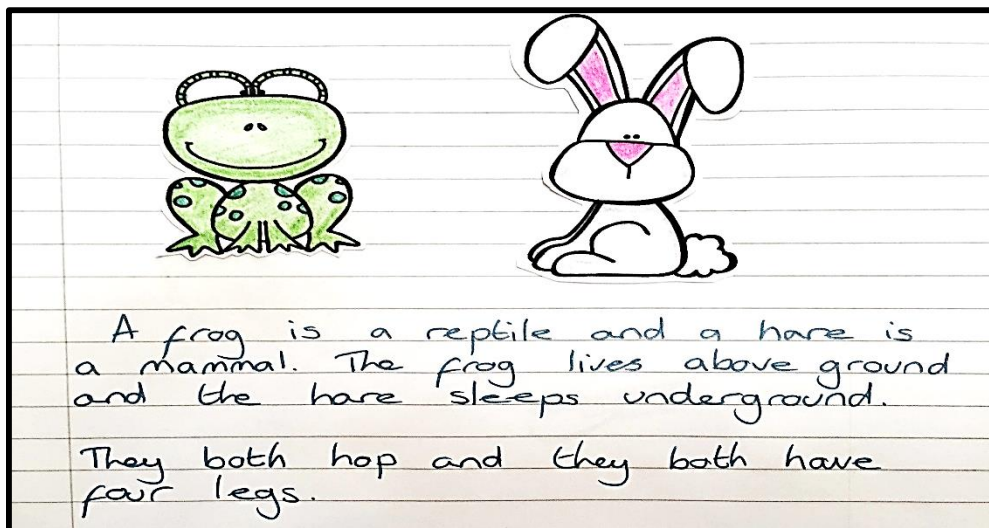 A frog is a reptile and a hare is
a mammal. The frog lives above ground
and the hare sleeps underground.
They both hop and they both have
four legs.